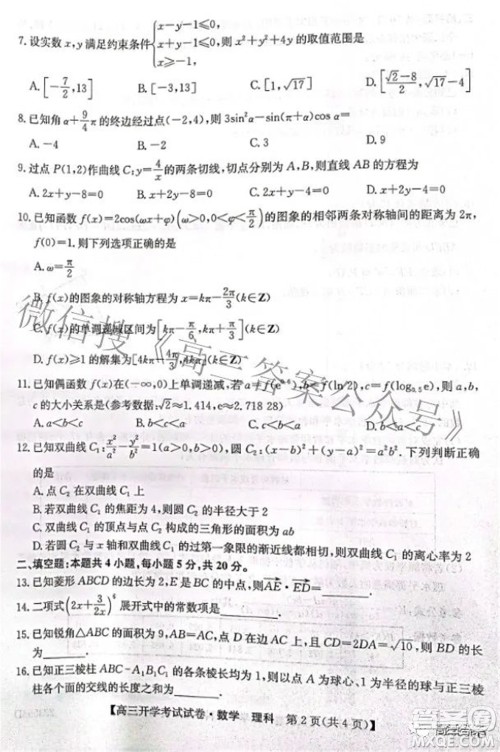 7. 设实数 x,y 满足约束条件{x-y-1≤0, x+y-1≤0, x≥-1, 则 x²+y²+4y 的取值范围是
A. [-7/2,13] B. [-3,13] C. [1,√17] D. [(√2-8)/2,√17-4]
8. 已知角 α+9/4π 的终边经过点(-2,4),则 3sin²α-sin(π+α)cosα=
A. -4 B. -2 C. 0 D. 3
9. 过点 P(1,2)作曲线 C:y=4/x 的两条切线,切点分别为 A,B,则直线 AB 的方程为
A. 2x+y-8=0 B. x+2y-8=0 C. 2x+y-4=0 D. x+2y-4=0
10. 已知函数 f(x)=2cos(ωx+φ)(ω>0,0<φ<π/2)的图象的相邻两条对称轴间的距离为 2π,
f(0)=1,则下列选项正确的是
A. ω=π/2
B. f(x)的图象的对称轴方程为 x=kπ-2π/3(k∈Z)
C. f(x)的单调递减区间为[kπ-π/6,kπ+π/3](k∈Z)
D. f(x)≥1的解集为[4kπ-4π/3,4kπ](k∈Z)
11. 已知偶函数 f(x)在(-∞,0)上单调递减,若 b=f(ln√2),则 a,b,
c 的大小关系是(参考数据:√2≈1.414,e≈2.718 28)
12. 已知双曲线 C₁:x²/a²-y²/b²=1(a>0,b>0),圆 C₂:(x-b)²+(y-a)²=a²b². 下列判断正确
的是
A. 点 C₂ 在双曲线 C₁ 上
B. 若双曲线 C₁ 的虚轴长为4,则圆 C₂ 的半径大于2
C. 双曲线 C₁ 的顶点与点 C₂ 构成的三角形的面积为 ab
D. 若圆 C₂ 与 x 轴和双曲线 C₁ 的过第一象限的渐近线都相切,则双曲线 C₁ 的离心率为2
二、填空题:本题共4小题,每小题5分,共20分.
13. 已知菱形 ABCD 的边长为2,E 是 BC 的中点,则AE·ED=
14. 二项式(2x+3/2x)⁶ 展开式中的常数项是
15. 已知锐角△ABC 的面积为9,AB=AC,点 D 在边 AB 上,且 CD=2DA=√10,则 BD=
16. 已知正三棱柱 ABC-A₁B₁C₁ 的各条棱长均为1,则以点 A
为
【高三开学考试试卷·数学 理科 第2页(共4页)】
微信搜《高三答案公众号》